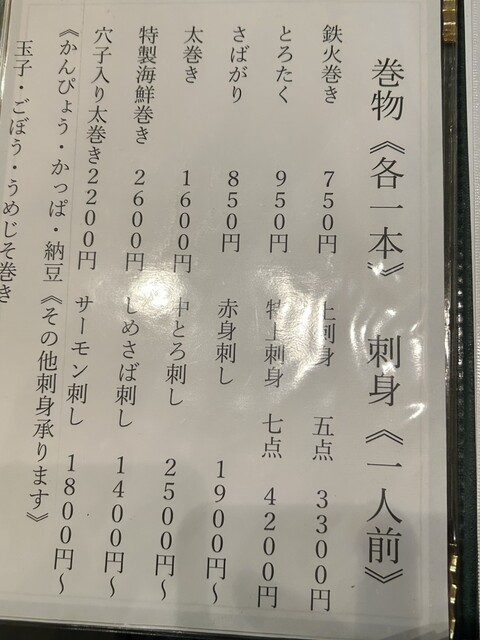 巻物《各一本》
鉄火巻き 750円
とろたく 950円
さばがり 850円
太巻き 1600円
特製海鮮巻き 2600円
穴子入り太巻き 2200円
《かんぴょう・かっぱ・納豆
玉子・ごぼう・うめじそ巻き
刺身《一人前》
上刺身 五点 3300円
特上刺身 七点 4200円
赤身刺し 1900円～
中とろ刺し 2500円～
しめさば刺し 1400円～
サーモン刺し 1800円～
《その他刺身承ります》